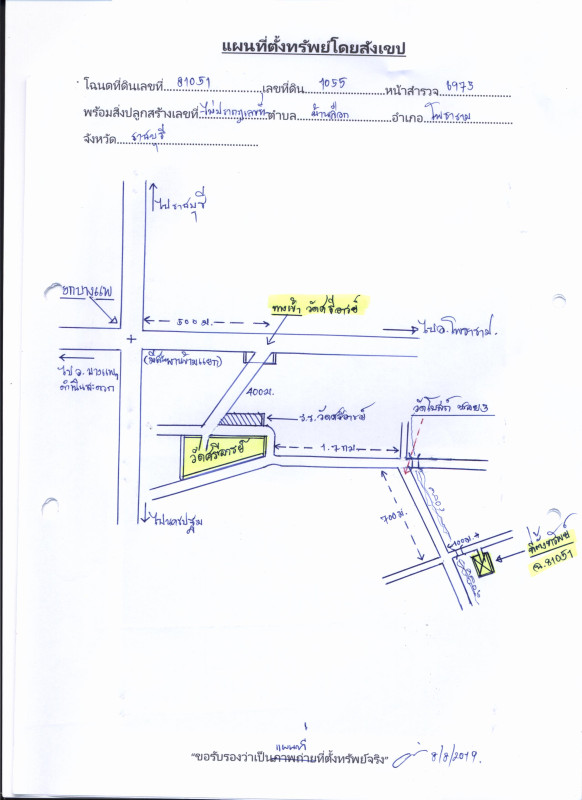 แผนที่ตั้งทรัพย์โดยสังเขป
โฉนดที่ดินเลขที่ 81051 เลขที่ดิน 1055 หน้าสำรวจ 6973
พร้อมสิ่งปลูกสร้างเลขที่ ไม่ปรากฏเลขที่ ตำบล บ้านเลือก อำเภอ โพธาราม
จังหวัด ราชบุรี
ไปราชบุรี
แยกบางแพ
500 ม.
ทางเข้า วัดศรีอารย์
ไป อ. โพธาราม
ไป อ. บางแพ,
ดำเนินสะดวก
(มีสะพานข้ามแยก)
400 ม.
ร.ร. วัดศรีอารย์
วัดโบสถ์ ซอย 3
วัดศรีอารย์
1.7 กม
700 ม.
ไปนครปฐม
100 ม.
ที่ตั้งทรัพย์
ฉ. 81051
แผนที่
"ขอรับรองว่าเป็นภาพถ่ายที่ตั้งทรัพย์จริง" 8/8/2019.